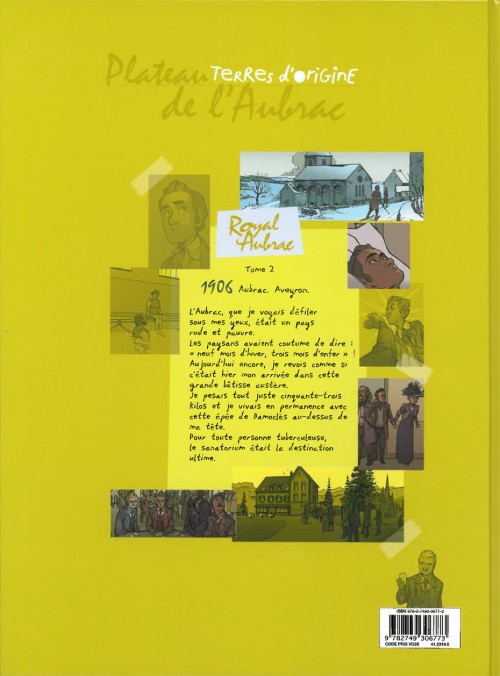 Plateau TERREs d'oRiGiNE
de l'Aubrac
Royal
Aubrac
Tome 2
1906 Aubrac. Aveyron.
L'Aubrac, que je voyais défiler
sous mes yeux, était un pays
rude et pauvre.
Les paysans avaient coutume de dire :
« neuf mois d'hiver, trois mois d'enfer » !
Aujourd'hui encore, je revois comme si
c'était hier mon arrivée dans cette
grande bâtisse austère.
Je pesais tout juste cinquante-trois
kilos et je vivais en permanence avec
cette épée de Damoclès au-dessus de
ma tête.
Pour toute personne tuberculeuse,
le sanatorium était la destination
ultime.
ISBN 978-2-7493-0677-3
9 782749 306773
CODE PRIX VO28
41.2319.6